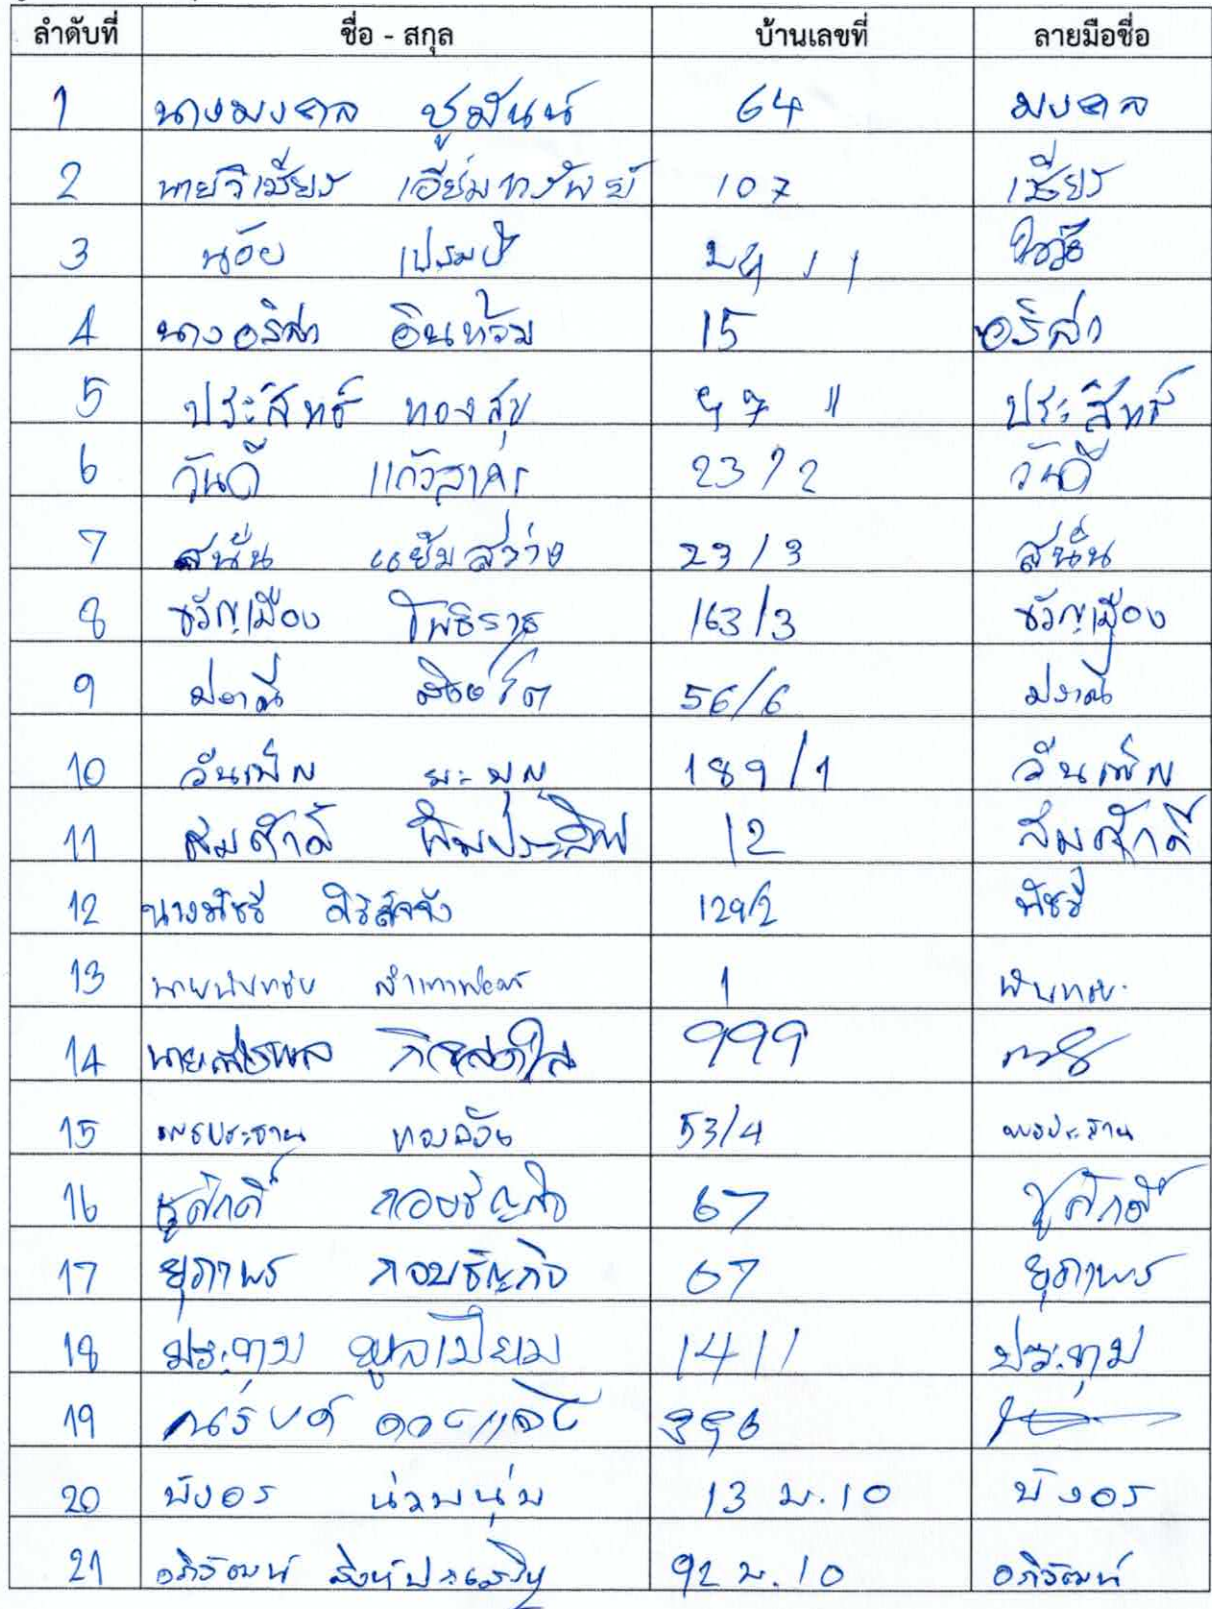 ลำดับที่ ชื่อ - สกุล บ้านเลขที่ ลายมือชื่อ
1 นางมงคล ชูมันน์ 64 มงคล
2 นายวิเชียร เอี่ยมทรัพย์ 107 เชียร
3 น้อย เปรมปรี
4 นางอริสา อินท้วม 15 อริสา
5 ประสิทธิ์ ทองสุข 47 ประสิทธิ์
6 วันดี แก้วสาคร 23/2 วันดี
7 สนั่น แย้มสว่าง 23/3 สนั่น
8 ขวัญเมือง โพธิราช 163/3 ขวัญเมือง
9 ปราณี 56/6 ปราณี
10 วันเพ็ญ มะบุญ 189/1 วันเพ็ญ
11 สมศักดิ์ พิมประสิพ 12 สมศักดิ์
12 นางพัชรี ศิริสัจจัง 129/2 พัชรี
13 นาย 1
14 นาย 999
15 พรประธาน ทองด้วง 53/4 พรประธาน
16 ชูศักดิ์ กอบธัญกิจ 67 ชูศักดิ์
17 ยุภาพร กอบธัญกิจ 67 ยุภาพร
18 ประทุม พูลเปี่ยม 14/1 ประทุม
19 ณรงค์ 396
20 บังอร น่วมนุ่ม 13 ม.10 บังอร
21 อภิวัฒน์ 92 ม.10 อภิวัฒน์